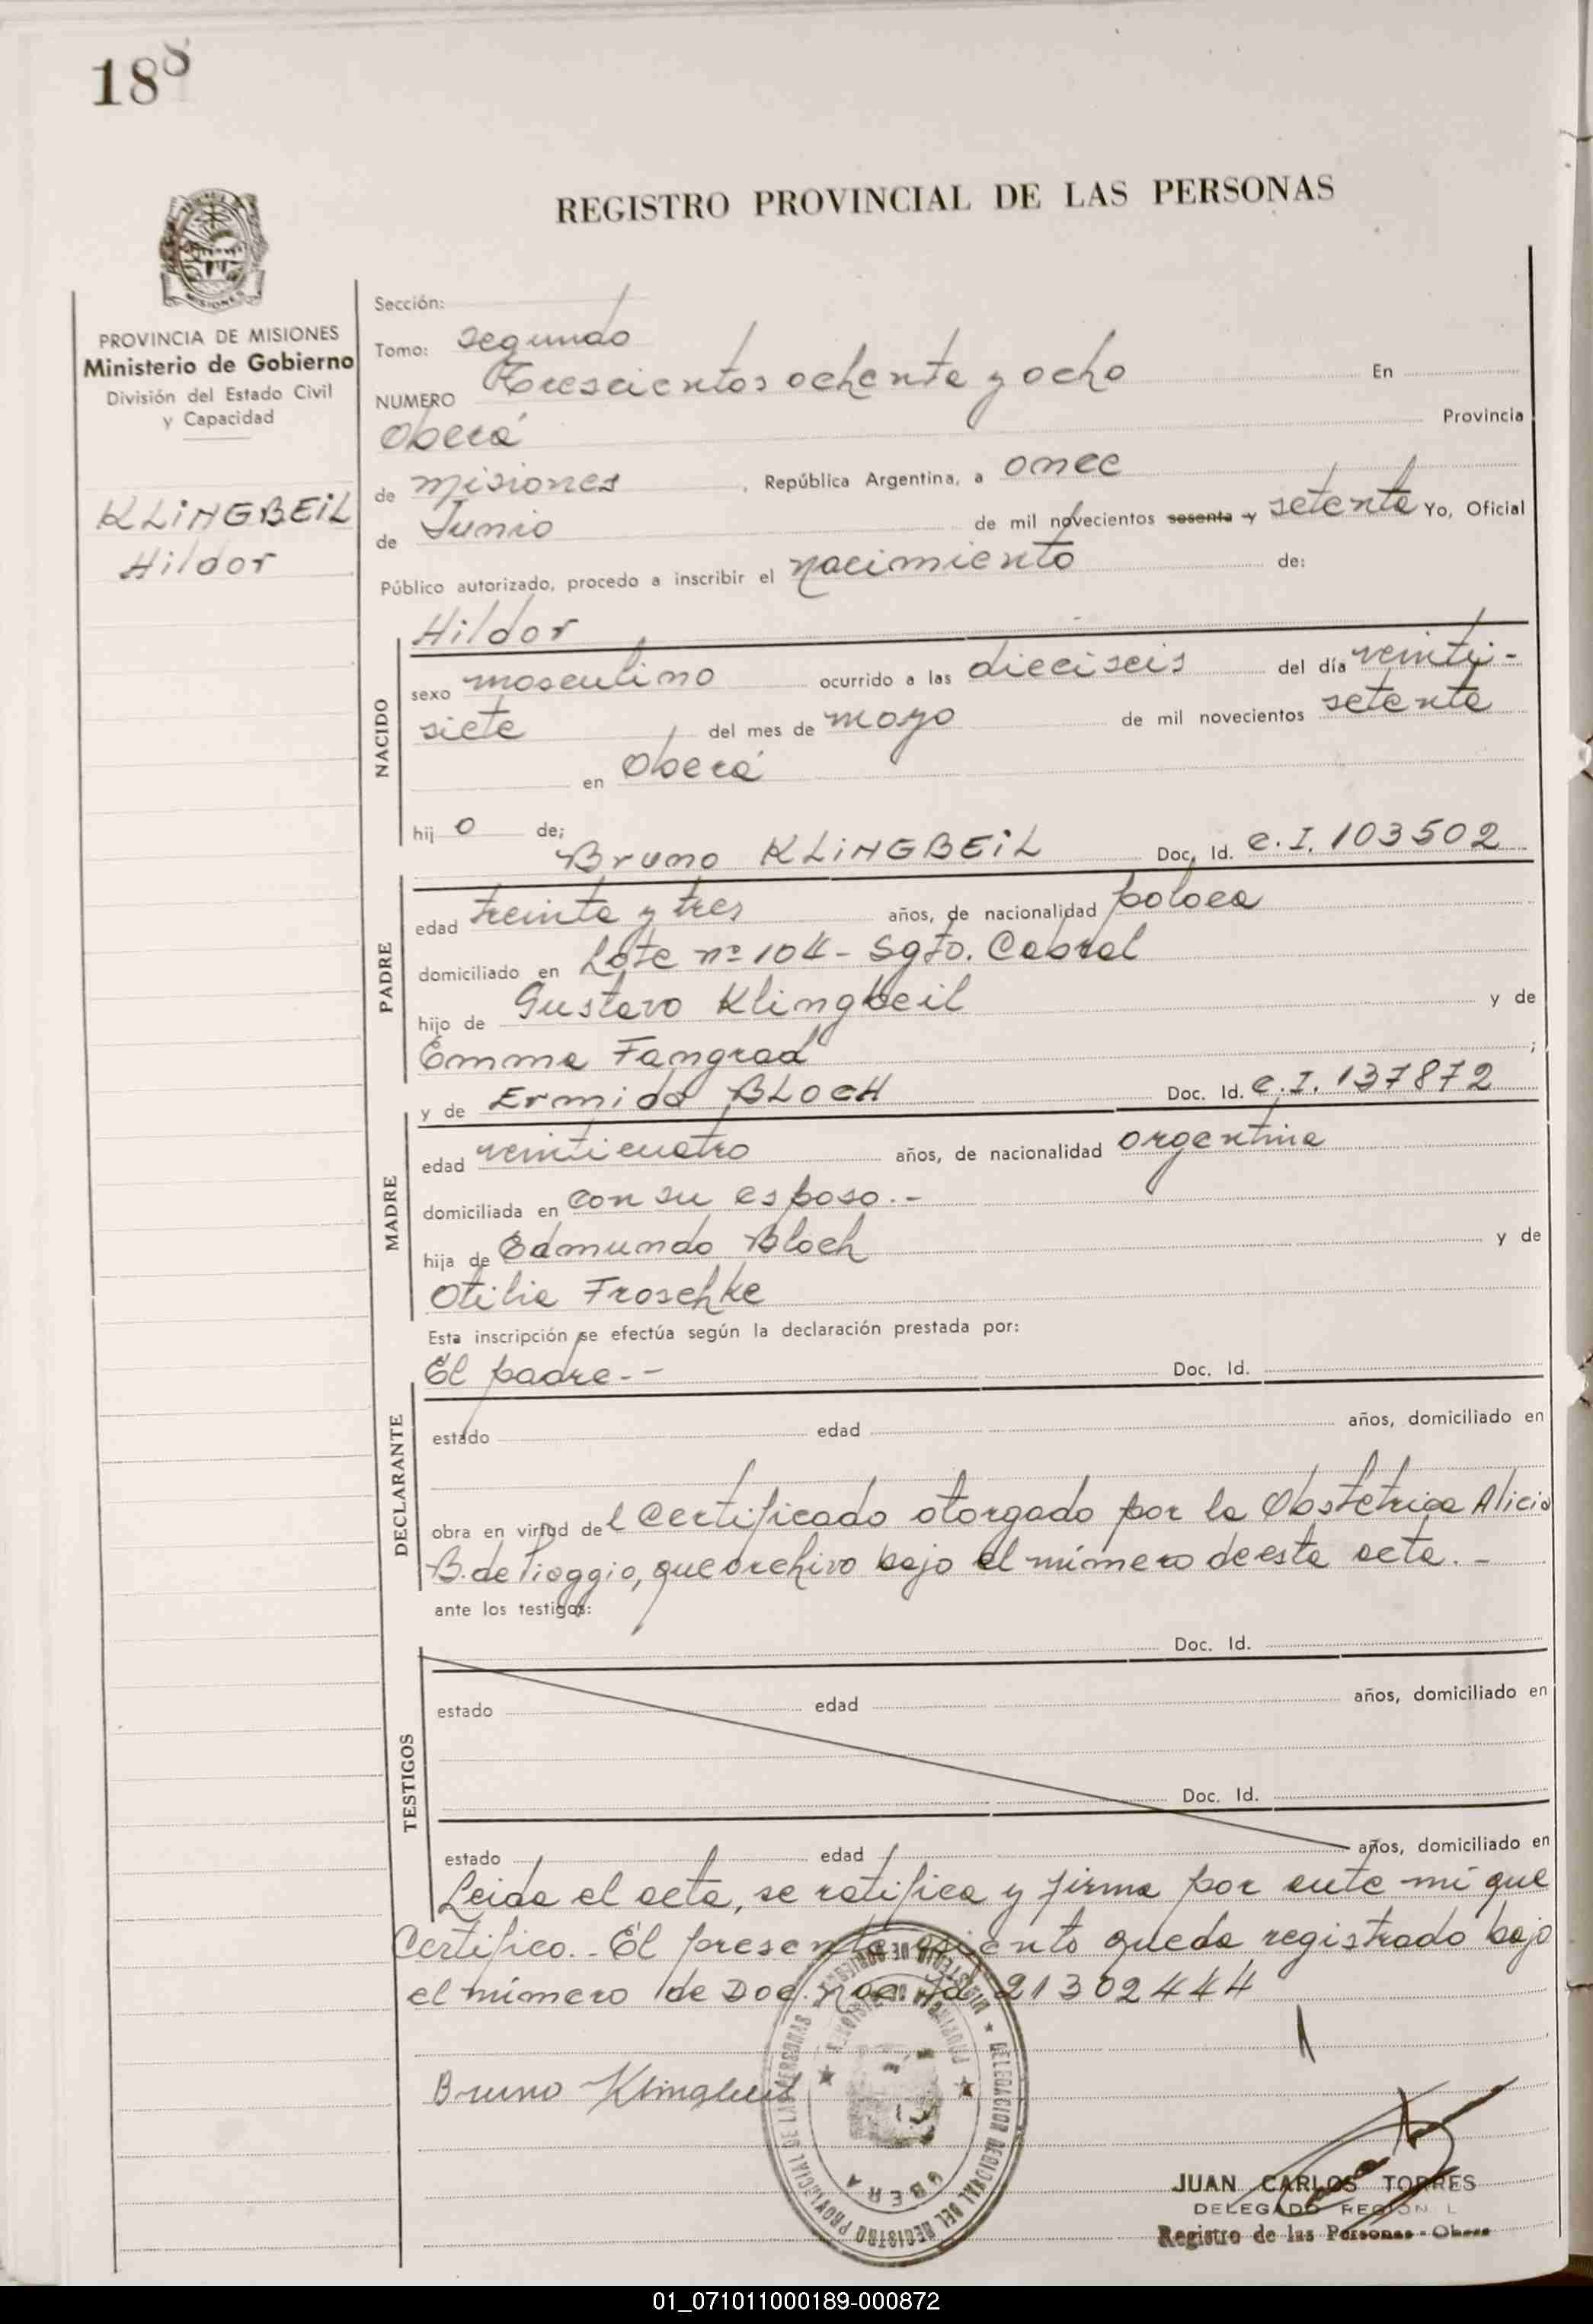 188
REGISTRO PROVINCIAL DE LAS PERSONAS
MISIONES
PROVINCIA DE MISIONES
Ministerio de Gobierno
División del Estado Civil
y Capacidad
KLiNGBEiL
Hildor
Sección:
Tomo: Segundo
NUMERO Trescientos ochenta y ocho En
Oberá Provincia
de misiones , República Argentina, a once
de Junio de mil novecientos sesenta y setenta Yo, Oficial
Público autorizado, procedo a inscribir el nacimiento de:
Hildor
NACIDO
sexo masculino ocurrido a las dieciseis del día veinti-
siete del mes de mayo de mil novecientos setenta
en Oberá
hij o de;
Bruno KLiNGBEiL Doc. Id. C.I. 103502
PADRE
edad treinta y tres años, de nacionalidad polaca
domiciliado en Lote nº 104 - Sgto. Cabral
hijo de Gustavo Klingbeil y de
Emma Fangrad ;
y de Ermida BLOCH Doc. Id. C.I. 137872
MADRE
edad veinticuatro años, de nacionalidad argentina
domiciliada en con su esposo.-
hija de Edmundo Bloch y de
Otilia Froschke
Esta inscripción se efectúa según la declaración prestada por:
El padre.- Doc. Id.
DECLARANTE
estado edad años, domiciliado en
obra en virtud del Certificado otorgado por la Obstetrica Alicia
B. de Pioggio, que archivo bajo el número de esta acta.-
ante los testigos:
Doc. Id.
TESTIGOS
estado edad años, domiciliado en
Doc. Id.
estado edad años, domiciliado en
Leida el acta, se ratifica y firma por ante mí que
Certifico.- El presente asiento queda registrado bajo
el número de Doc. Nac. Id. 21302444
Bruno Klingbeil
DELEGACION REGIONAL DEL REGISTRO PROVINCIAL DE LAS PERSONAS
OBERA
JUAN CARLOS TORRES
DELEGADO REGIONAL
Registro de las Personas - Obera
01_071011000189-000872